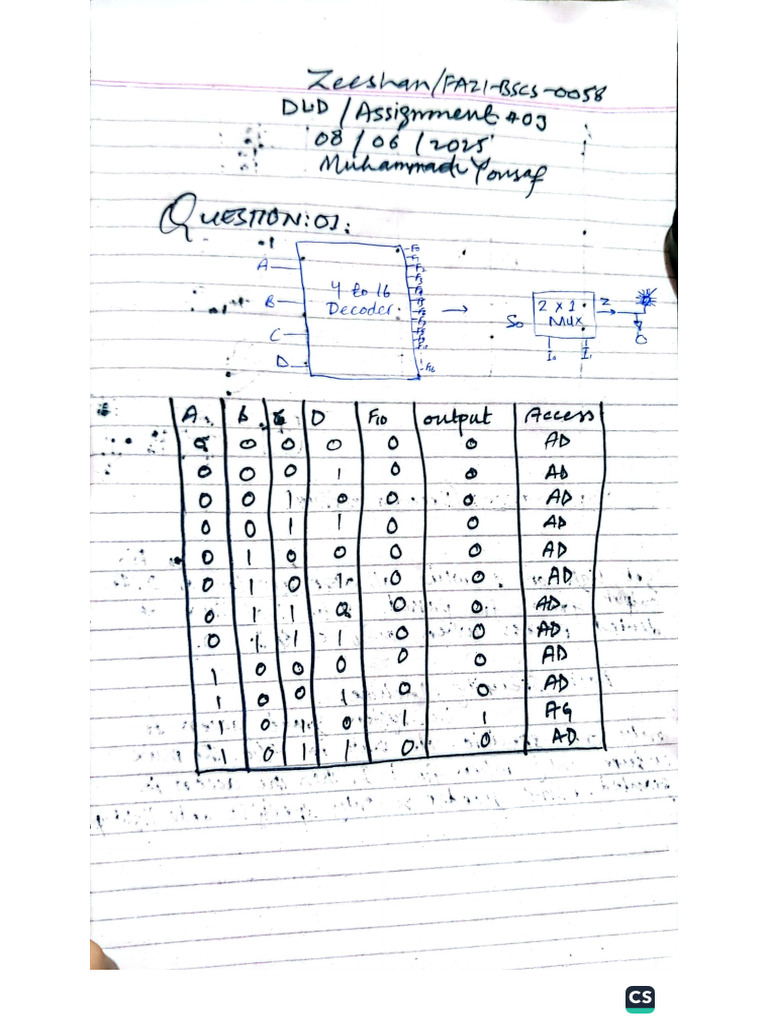 Zeeshan/FA21-BSCS-0058
DLD / Assignment #03
08 / 06 / 2025
Muhammad Yousaf
QUESTION:01:
A
B
C
D
4 to 16
Decoder
F0
F1
F2
F3
F4
F5
F6
F7
F8
F9
F10
2 x 1
Mux
S0
I0 I1
Z
A B C D F10 output Access
0 0 0 0 0 0 AD
0 0 0 1 0 0 AD
0 0 1 0 0 0 AD
0 0 1 1 0 0 AD
0 1 0 0 0 0 AD
0 1 0 1 0 0 AD
0 1 1 0 0 0 AD
0 1 1 1 0 0 AD
1 0 0 0 0 0 AD
1 0 0 1 0 0 AD
1 0 1 0 1 1 AG
1 0 1 1 0 0 AD
CS